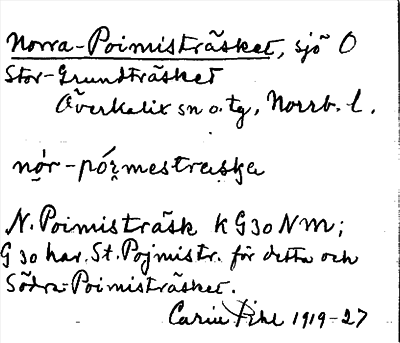 Norra-Poimisträsket, sjö O
Stor-Grundträsket
Överkalix sn o. tg, Norrb. l.
nọ́r-póɪ̯mestraska
N. Poimisträsk KG30NM;
G 30 har. St. Pojmistr. för detta och
Södra-Poimisträsket.
Carin Pihl 1919-27